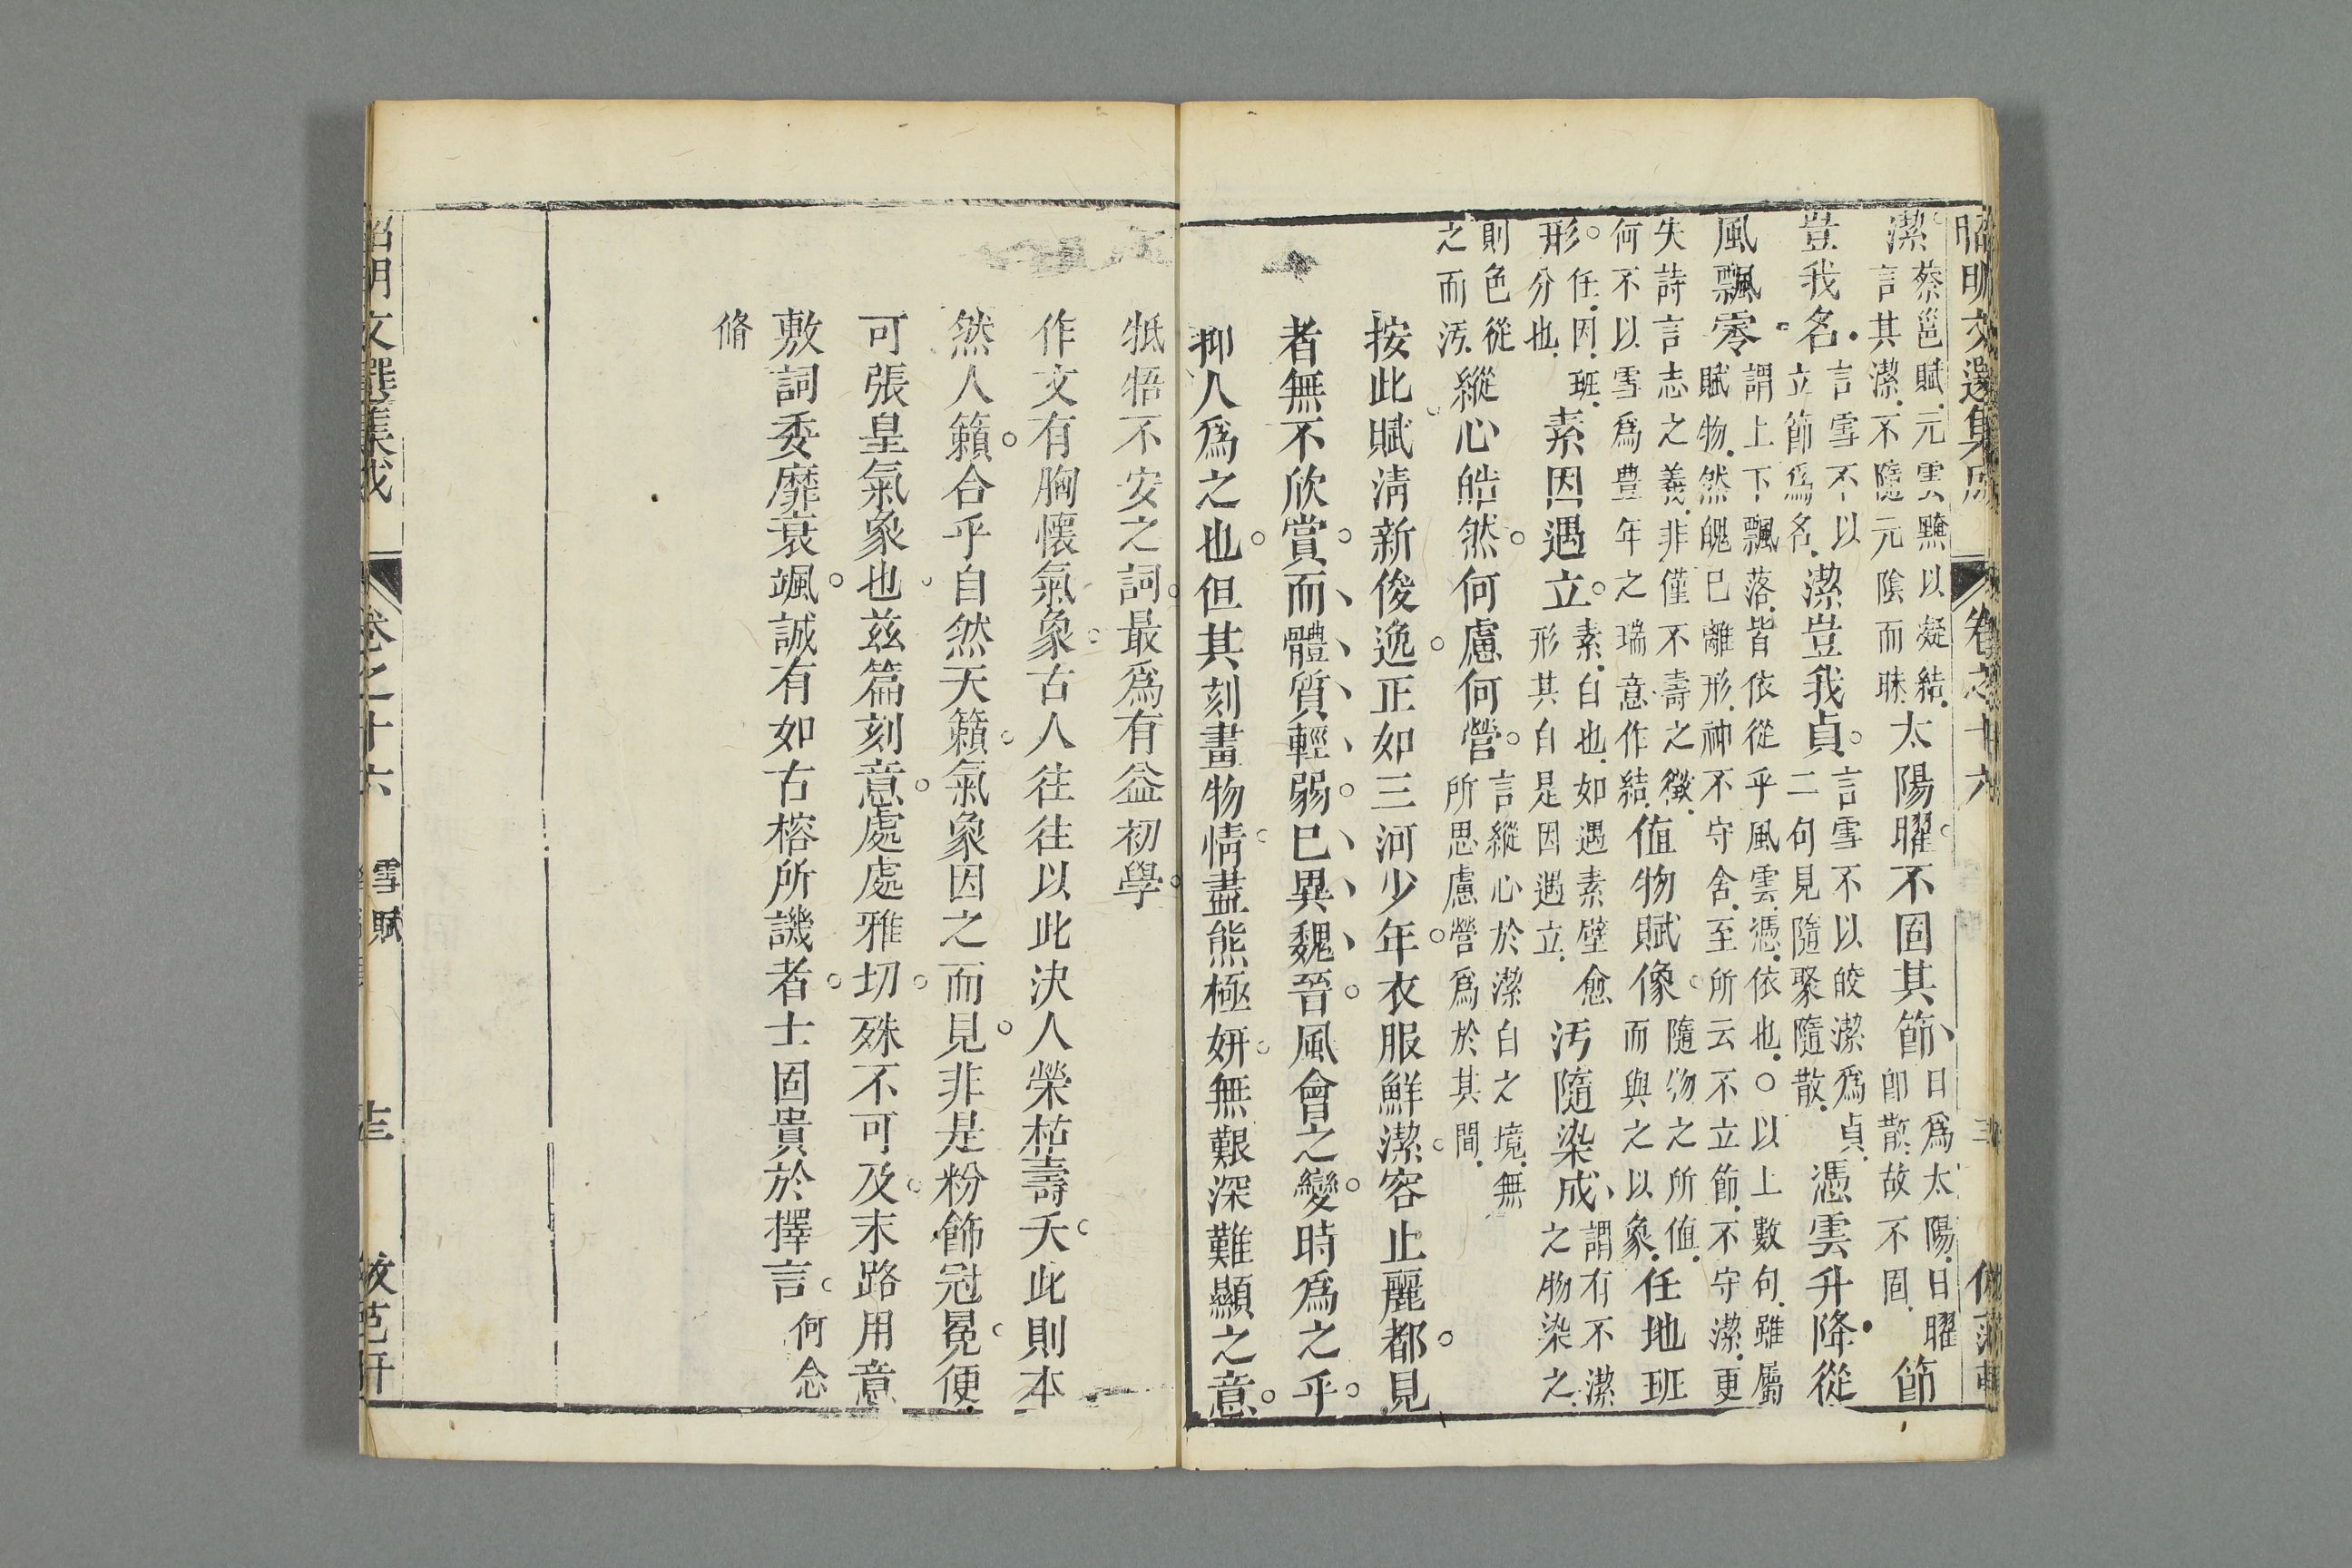 昭明文選集成　卷之十六
潔蔡邕賦元雲黮以凝結言其潔不隨元陰而昧太陽曜不固其節日爲太陽日曜卽散故不固節
豈我名言雪不以立節爲名潔豈我貞言雪不以皎潔爲貞二句見隨聚隨散憑雲升降從
風飄零謂上下飄落皆依從乎風雲憑依也○以上數句雖屬賦物然魄已離形神不守舍至所云不立節不守潔更
失詩言志之義非僅不壽之徵何不以雪爲豊年之瑞意作結値物賦像隨物之所値而與之以象任地班
形任因班分也素因遇立素白也如遇素壁愈形其白是因遇立汚隨染成謂有不潔之物染之
則色從之而汚縱心皓然何慮何營言縱心於潔白之境無所思慮營爲於其間
按此賦淸新俊逸正如三河少年衣服鮮潔容止麗都見
者無不欣賞而體質輕弱已異魏晉風會之變時爲之乎
抑人爲之也但其刻畫物情盡態極妍無艱深難顯之意
牴牾不安之詞最爲有益初學
作文有胸懷氣象古人往往以此決人榮枯壽夭此則本
然人籟合乎自然天籟氣象因之而見非是粉飾冠冕便
可張皇氣象也兹篇刻意處處雅切殊不可及末路用意
敷詞委靡衰颯誠有如古榕所譏者士固貴於擇言　何念
脩
昭明文選集成　卷之十六　雪賦